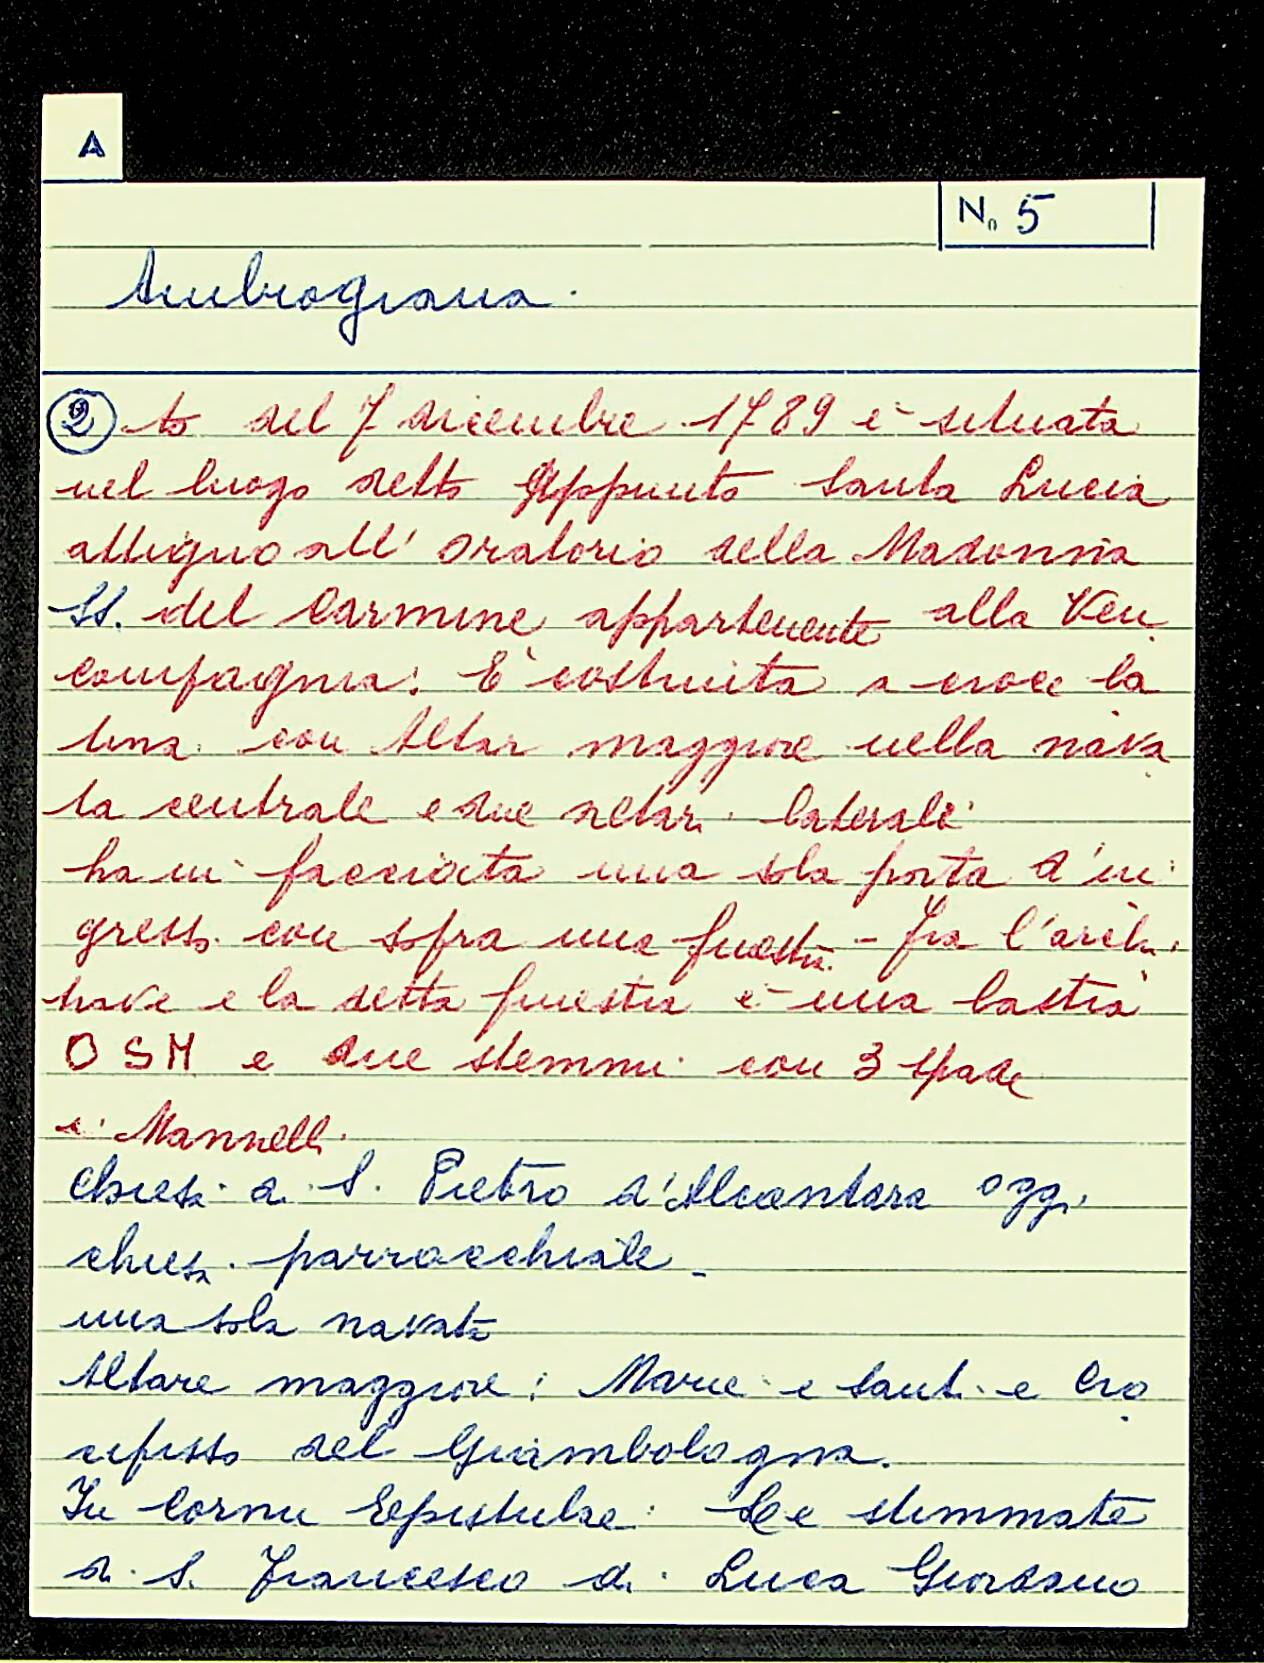 A
N. 5
Ambrogiana.
2 to del 7 dicembre 1789 è situata
nel luogo detto Appunto Santa Lucia
attiguo all' Oratorio della Madonna
SS. del Carmine appartenente alla Ven.
compagnia: E' costruita a croce la
tina con Altar maggiore nella nava
ta centrale e due altari laterali
ha in facciata una sola porta d'in
gresso con sopra una finestra - fra l'archi
trave e la detta finestra è una lastra
OSM e due stemmi con 3 spade
i Mannelli
Chiesa di S. Pietro d'Alcantara oggi
chiesa parrocchiale -
una sola navata
Altare maggiore: Marie e Santi e Cro
cifisso del Giambologna.
In Cornu Epistulae: Le stimmate
di S. Francesco di Luca Giordano